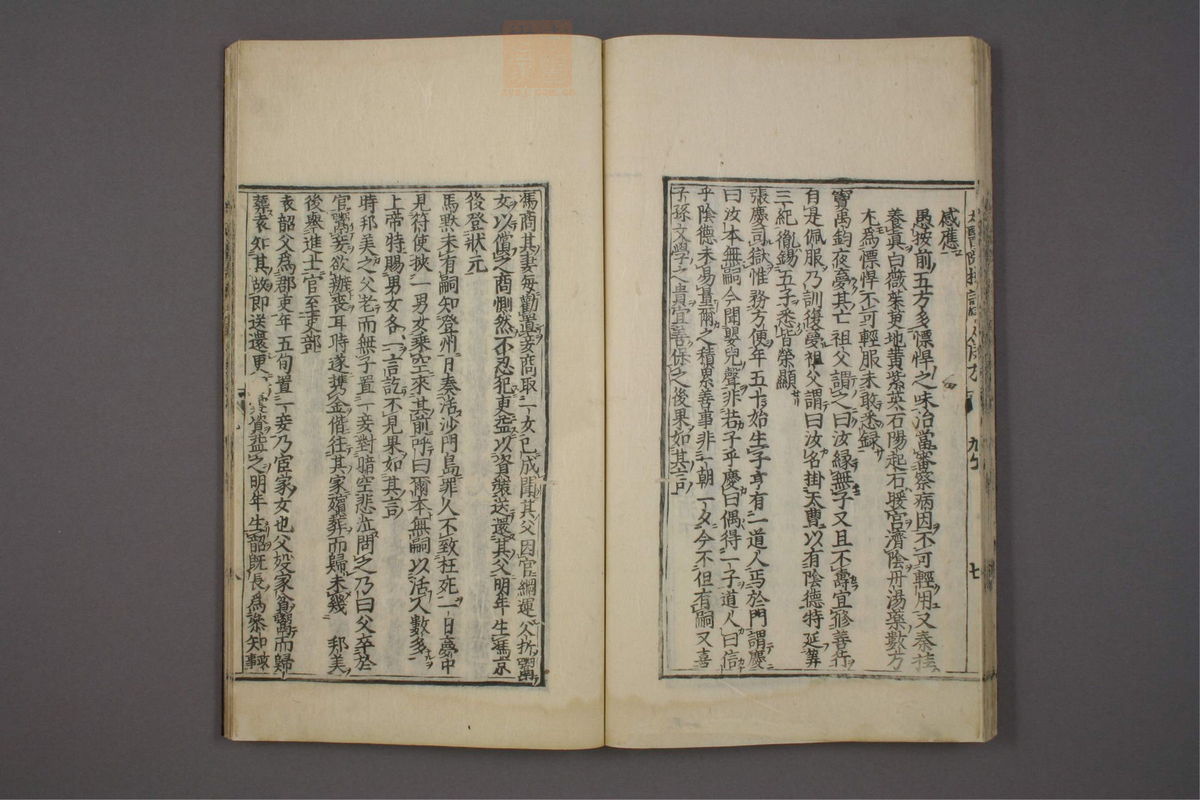 感應
愚按前五方多慓悍之味治當審察病因不可輕用又秦桂
養真白薇茱萸地黃紫英石陽起石暖宮濟陰丹湯藥數方
尤為慓悍不可輕服未敢悉録
竇禹鈞夜夢其亡祖父謂之曰汝緣無子又且不壽宜修善行
自是佩服乃訓復夢祖父謂曰汝名掛天曹以有陰德特延筭
三紀徹錫五子悉皆榮顯
張慶司獄惟務方便年五十始生子亨有一道人丐於門謂慶
曰汝本無嗣今聞嬰兒聲非若子乎慶曰偶得一子道人曰信
乎陰德未易量爾之積累善事非一朝一夕今不但有嗣又喜
子孫文學之貴宜善保之後果如其言
馮商其妻每勸置妾商取一女已成聞其父因官綱運欠折鬻
女以償之商惻然不忍犯更益以資裝送還其父明年生馮京
後登狀元
馬默未有嗣知登州日奏活沙門島罪人不致枉死一日夢中
見符使挾一男女乘空來其前呼曰爾本無嗣以活人數多
上帝特賜男女各一言訖不見果如其言
時邦美之父老而無子置一妾對暗空悲泣問之乃曰父卒於
官鬻妾欲辦喪耳時遂携金偕往其家殯葬而歸未幾 邦美
後舉進士官至吏部
袁韶父為郡吏年五旬置一妾乃宦家女也父歿家貧鬻而歸
葬袁知其故即送還更 資益之明年生韶旣長為叅知政事